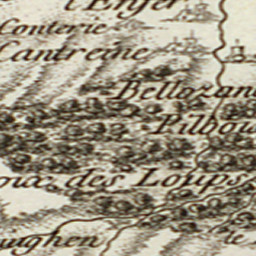 l'Enfer
Conterie
Cantreine
Bellozan
Pilbou
oux des Loups
uughen
le